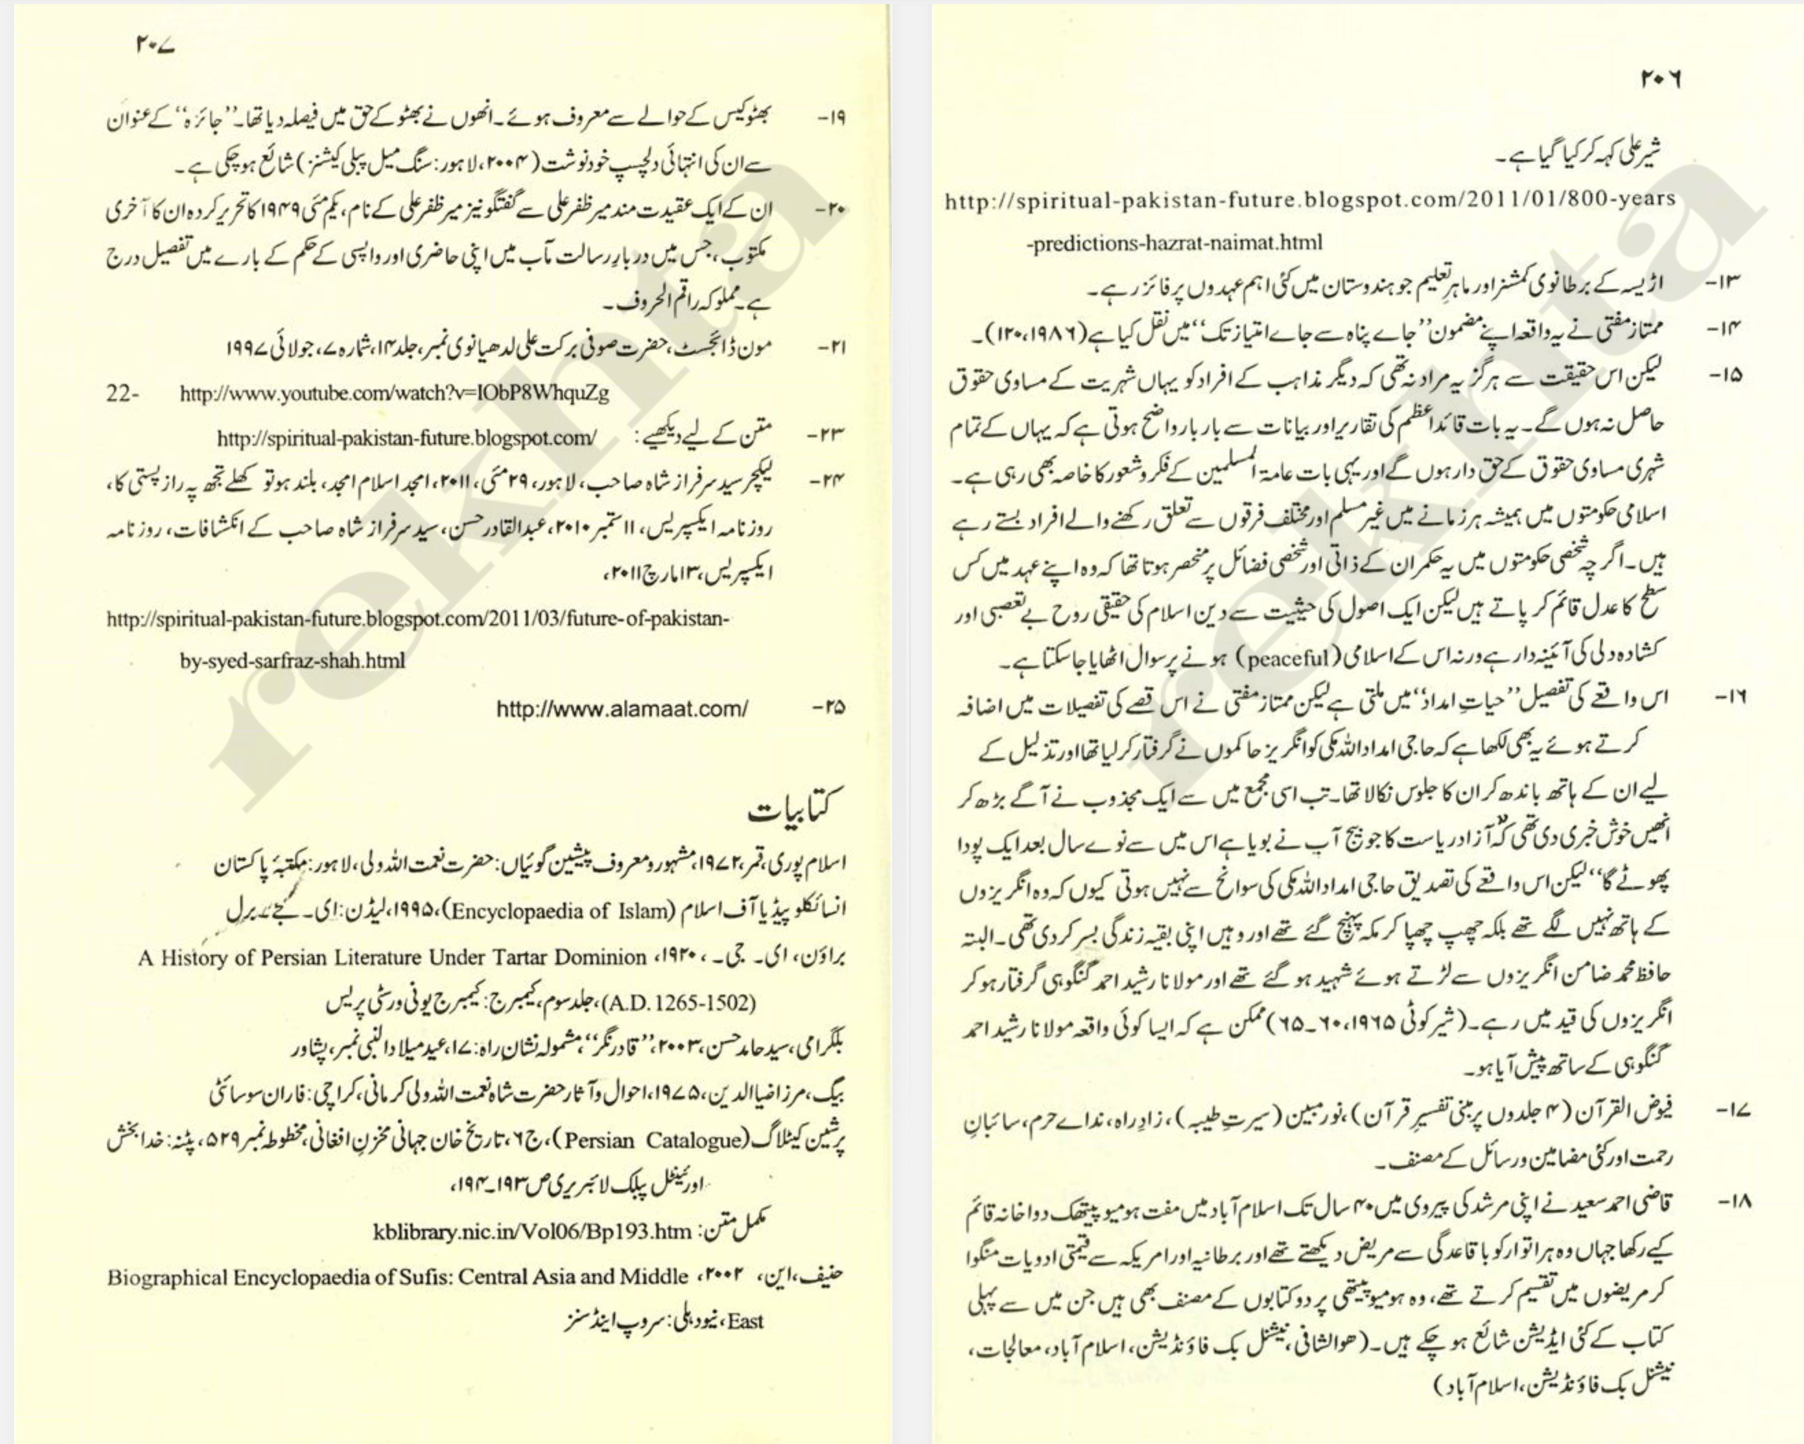 ۲۰۶
شیر علی کہہ کر کیا گیا ہے۔
http://spiritual-pakistan-future.blogspot.com/2011/01/800-years
-predictions-hazrat-naimat.html
۱۳- اڑیسہ کے برطانوی کمشنر اور ماہرِ تعلیم جو ہندوستان میں کئی اہم عہدوں پر فائز رہے۔
۱۴- ممتاز مفتی نے یہ واقعہ اپنے مضمون ’’جاے پناہ سے جاے امتیاز تک‘‘ میں نقل کیا ہے (۱۹۸۶، ۱۲۰)۔
۱۵- لیکن اس حقیقت سے ہرگز یہ مراد نہ تھی کہ دیگر مذاہب کے افراد کو یہاں شہریت کے مساوی حقوق
حاصل نہ ہوں گے۔ یہ بات قائد اعظم کی تقاریر اور بیانات سے بار بار واضح ہوتی ہے کہ یہاں کے تمام
شہری مساوی حقوق کے حق دار ہوں گے اور یہی بات عامۃ المسلمین کے فکر و شعور کا خاصہ بھی رہی ہے۔
اسلامی حکومتوں میں ہمیشہ ہر زمانے میں غیر مسلم اور مختلف فرقوں سے تعلق رکھنے والے افراد بستے رہے
ہیں۔ اگرچہ شخصی حکومتوں میں یہ حکمران کے ذاتی اور شخصی فضائل پر منحصر ہوتا تھا کہ وہ اپنے عہد میں کس
سطح کا عدل قائم کر پاتے ہیں لیکن ایک اصول کی حیثیت سے دین اسلام کی حقیقی روح بے تعصبی اور
کشادہ دلی کی آئینہ دار ہے ورنہ اس کے اسلامی (peaceful) ہونے پر سوال اٹھایا جا سکتا ہے۔
۱۶- اس واقعے کی تفصیل ’’حیاتِ امداد‘‘ میں ملتی ہے لیکن ممتاز مفتی نے اس قصے کی تفصیلات میں اضافہ
کرتے ہوئے یہ بھی لکھا ہے کہ حاجی امداد اللہ مکی کو انگریز حاکموں نے گرفتار کر لیا تھا اور تذلیل کے
لیے ان کے ہاتھ باندھ کر ان کا جلوس نکالا تھا۔ تب اسی مجمع میں سے ایک مجذوب نے آگے بڑھ کر
انھیں خوش خبری دی تھی کہ ’’آزاد ریاست کا جو بیج آپ نے بویا ہے اس میں سے نوے سال بعد ایک پودا
پھوٹے گا‘‘ لیکن اس واقعے کی تصدیق حاجی امداد اللہ مکی کی سوانح سے نہیں ہوتی کیوں کہ وہ انگریزوں
کے ہاتھ نہیں لگے تھے بلکہ چھپ چھپا کر مکہ پہنچ گئے تھے اور وہیں اپنی بقیہ زندگی بسر کر دی تھی۔ البتہ
حافظ محمد ضامن انگریزوں سے لڑتے ہوئے شہید ہو گئے تھے اور مولانا رشید احمد گنگوہی گرفتار ہو کر
انگریزوں کی قید میں رہے۔ (شیرکوٹی ۱۹۶۵، ۶۰۔۶۵) ممکن ہے کہ ایسا کوئی واقعہ مولانا رشید احمد
گنگوہی کے ساتھ پیش آیا ہو۔
۱۷- فیوض القرآن (۴ جلدوں پر مبنی تفسیرِ قرآن)، نور مبین (سیرتِ طیبہ)، زادِ راہ، نداے حرم، سائبانِ
رحمت اور کئی مضامین و رسائل کے مصنف۔
۱۸- قاضی احمد سعید نے اپنی مرشد کی پیروی میں ۴۰ سال تک اسلام آباد میں مفت ہومیو پیتھک دواخانہ قائم
کیے رکھا جہاں وہ ہر اتوار کو باقاعدگی سے مریض دیکھتے تھے اور برطانیہ اور امریکہ سے قیمتی ادویات منگوا
کر مریضوں میں تقسیم کرتے تھے، وہ ہومیو پیتھی پر دو کتابوں کے مصنف بھی ہیں جن میں سے پہلی
کتاب کے کئی ایڈیشن شائع ہو چکے ہیں۔ (ھوالشافی، نیشنل بک فاؤنڈیشن، اسلام آباد، معالجات،
نیشنل بک فاؤنڈیشن، اسلام آباد)
۲۰۷
۱۹- بھٹو کیس کے حوالے سے معروف ہوئے۔ انھوں نے بھٹو کے حق میں فیصلہ دیا تھا۔ ’’جائزہ‘‘ کے عنوان
سے ان کی انتہائی دلچسپ خودنوشت (۲۰۰۴، لاہور: سنگ میل پبلی کیشنز) شائع ہو چکی ہے۔
۲۰- ان کے ایک عقیدت مند میر ظفر علی سے گفتگو نیز میر ظفر علی کے نام، یکم مئی ۱۹۴۹ کا تحریر کردہ ان کا آخری
مکتوب، جس میں دربارِ رسالت مآب میں اپنی حاضری اور واپسی کے حکم کے بارے میں تفصیل درج
ہے۔ مملوکہ راقم الحروف۔
۲۱- مون ڈائجسٹ، حضرت صوفی برکت علی لدھیانوی نمبر، جلد ۱۴، شمارہ ۷، جولائی ۱۹۹۷
22- http://www.youtube.com/watch?v=IObP8WhquZg
۲۳- متن کے لیے دیکھیے: http://spiritual-pakistan-future.blogspot.com/
۲۴- لیکچر سید سرفراز شاہ صاحب، لاہور، ۲۹ مئی، ۲۰۱۱، امجد اسلام امجد، بلند ہو تو کھلے تجھ پہ راز پستی کا،
روزنامہ ایکسپریس، ۱۱ ستمبر ۲۰۱۰، عبدالقادر حسن، سید سرفراز شاہ صاحب کے انکشافات، روزنامہ
ایکسپریس، ۱۳ مارچ ۲۰۱۱،
http://spiritual-pakistan-future.blogspot.com/2011/03/future-of-pakistan-
by-syed-sarfraz-shah.html
۲۵- http://www.alamaat.com/
کتابیات
اسلام پوری، قمر، ۱۹۷۲، مشہور و معروف پیشین گوئیاں: حضرت نعمت اللہ ولی، لاہور: مکتبۂ پاکستان
انسائکلو پیڈیا آف اسلام (Encyclopaedia of Islam)، ۱۹۹۵، لیڈن: ای۔ جے۔ برل
براؤن، ای۔ جی۔، ۱۹۲۰، A History of Persian Literature Under Tartar Dominion
(A.D. 1265-1502)، جلد سوم، کیمبرج: کیمبرج یونی ورسٹی پریس
بلگرامی، سید حامد حسن، ۲۰۰۳، ’’قادر نگر‘‘، مشمولہ نشان راہ: ۱۷، عید میلاد النبی نمبر، پشاور
بیگ، مرزا ضیا الدین، ۱۹۷۵، احوال و آثار حضرت شاہ نعمت اللہ ولی کرمانی، کراچی: فاران سوسائٹی
پرشین کیٹلاگ (Persian Catalogue)، ج ۶، تاریخ خان جہانی مخزن افغانی، مخطوطہ نمبر ۵۲۹، پٹنہ: خدا بخش
اورئینٹل پبلک لائبریری ص ۱۹۳۔۱۹۴،
مکمل متن: kblibrary.nic.in/Vol06/Bp193.htm
حنیف، این، ۲۰۰۲، Biographical Encyclopaedia of Sufis: Central Asia and Middle
East، نیو دہلی: سروپ اینڈ سنز
rekhta
rekhta